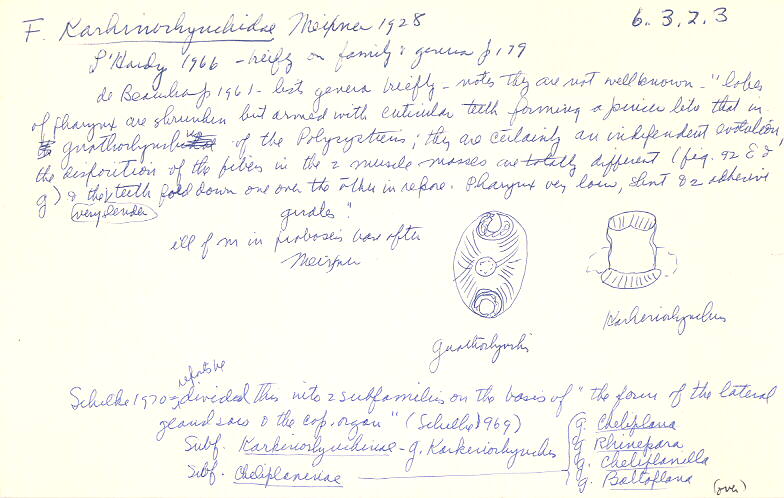 F. Karkinorhynchidae Meixner 1928
6.3.2.3
L'Hardy 1966 - briefly on family & genera p 179
de Beauchamp 1961 - lists genera briefly - notes they are not well known - "lobes
of pharynx are shrunken but armed with cuticular teeth forming a pincer like that in
gnathorhynchinae of the Polycystiens; they are certainly an independent evolution
the disposition of the fibers in the 2 muscle masses are totally different (fig. 92 E &
g) & the teeth fold down one over the other in repose. Pharynx very low, slent & 2 adhesive
very slender
girdles".
ill f m in proboscis base after
Meixner
Gnathorhynchi
Karkinorhynchus
Schilke 1970 = divided this into 2 subfamilies on the basis of "the form of the lateral
gland sacs & the cop. organ" (Schilke 1969)
Subf. Karkinorhynchinae - g. Karkinorhynchus
Subf. Cheliplaninae
g. Cheliplana
g. Rhinepera
g. Cheliplanilla
g. Baltoplana
(over)